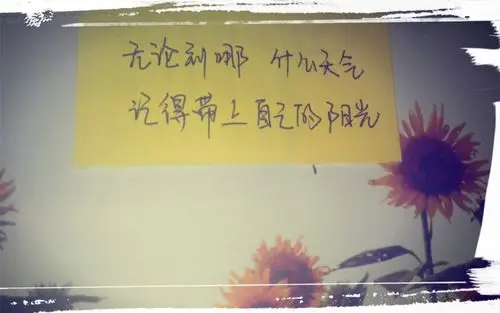 无论到哪 什么天气
记得带上自己的阳光